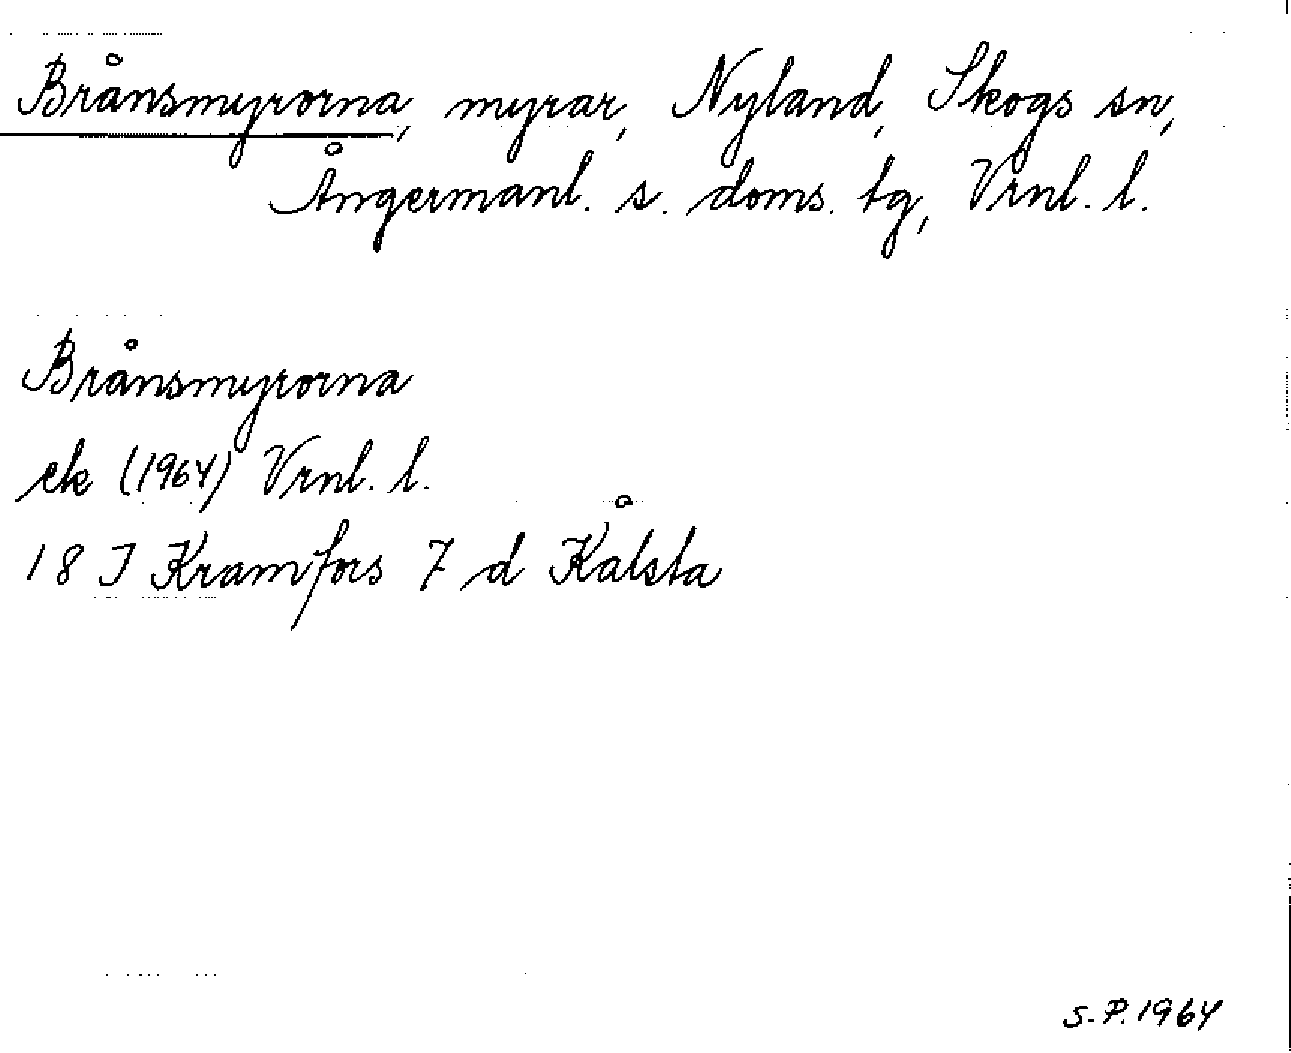 Brånsmyrorna, myrar, Nyland, Skogs sn,
Ångermanl. s. doms. tg, Vrnl. l.
Brånsmyrorna
ek (1964) Vrnl. l.
18 J Kramfors 7 d Kålsta
S.P. 1964